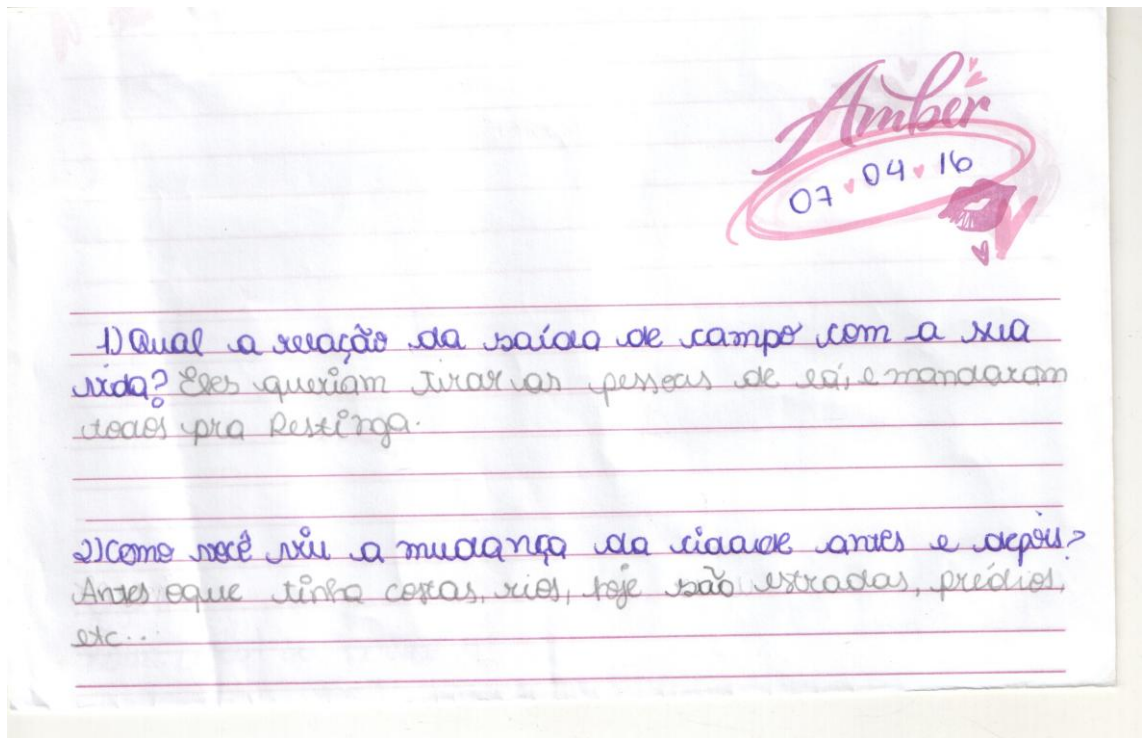 Amber
07 04 16
1) Qual a relação da saída de campo com a sua
vida? Eles queriam tirar as pessoas de lá, e mandaram
todos pra Restinga.
2) Como você viu a mudança da cidade antes e depois?
Antes oque tinha costas, rios, hoje são estradas, prédios,
etc...